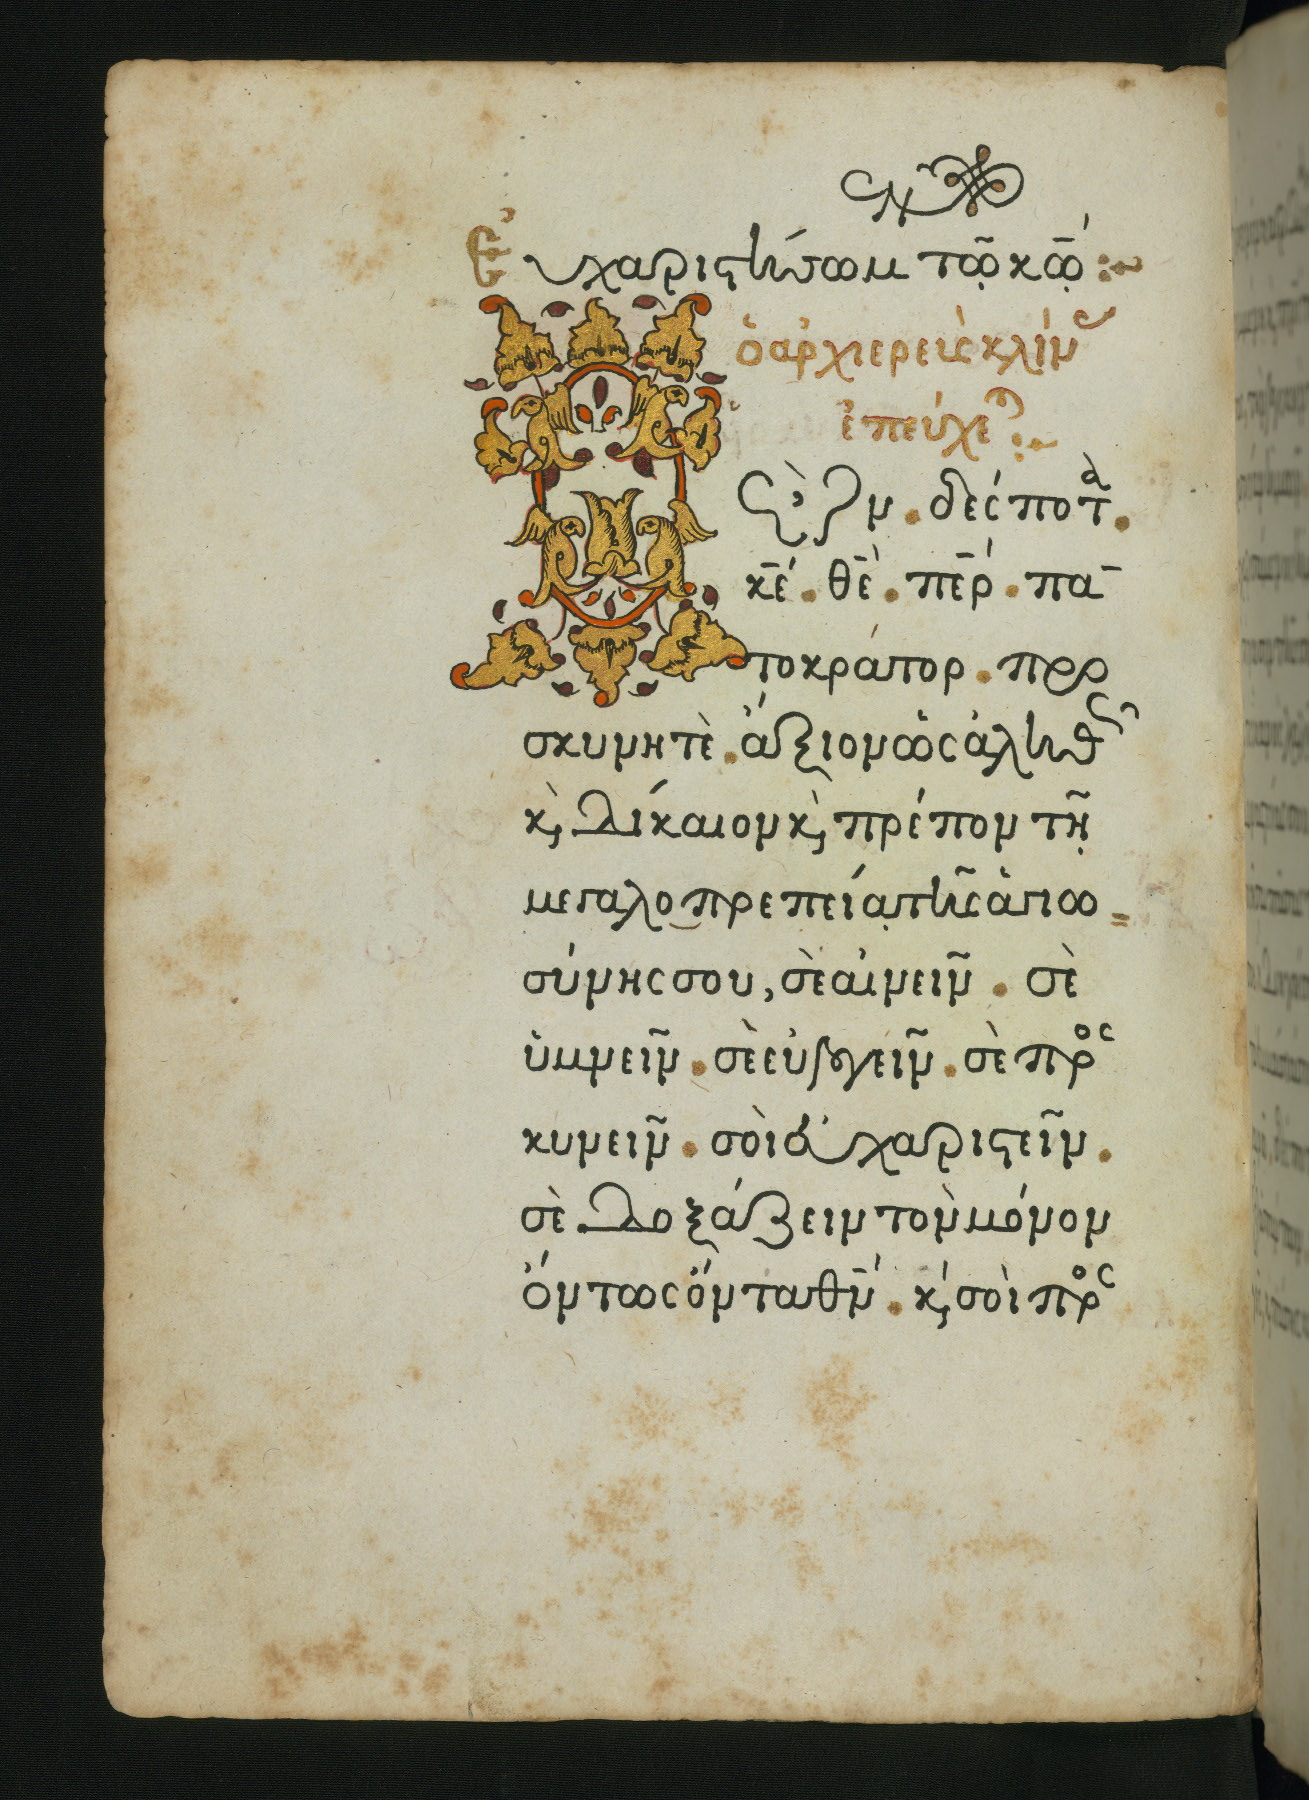 Εὐχαριστήσωμ τῶ κῶ
ὁ ἀρχιερεὺς κλίν
ἐπεύχε
Ὁ ὢν . δέσποτα .
κε . θε . περ . πα
τοκράτορ . προ
σκυνητὲ . ἄξιον ὡς ἀληθς
κ, δίκαιον κ, πρέπον τῆ
μεγαλοπρεπεία τῆς ἁγιω
σύνης σου, σὲ αἰνεῖν . σὲ
ὑμνεῖν . σὲ εὐλογεῖν . σὲ προς
κυνεῖν . σοὶ εὐχαριστεῖν .
σὲ δοξάζειν τὸν μόνον
ὄντως ὄντα θν . κ, σοὶ προς